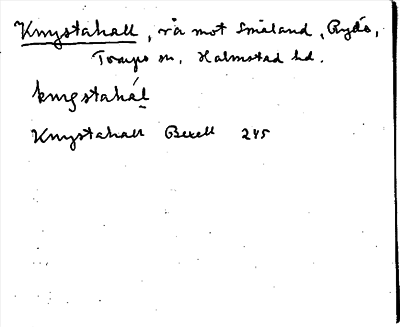 Knystahall, rå mot Småland, Rydö,
Torups sn, Halmstad hd.
knystahál
Knystahall Bexell 245